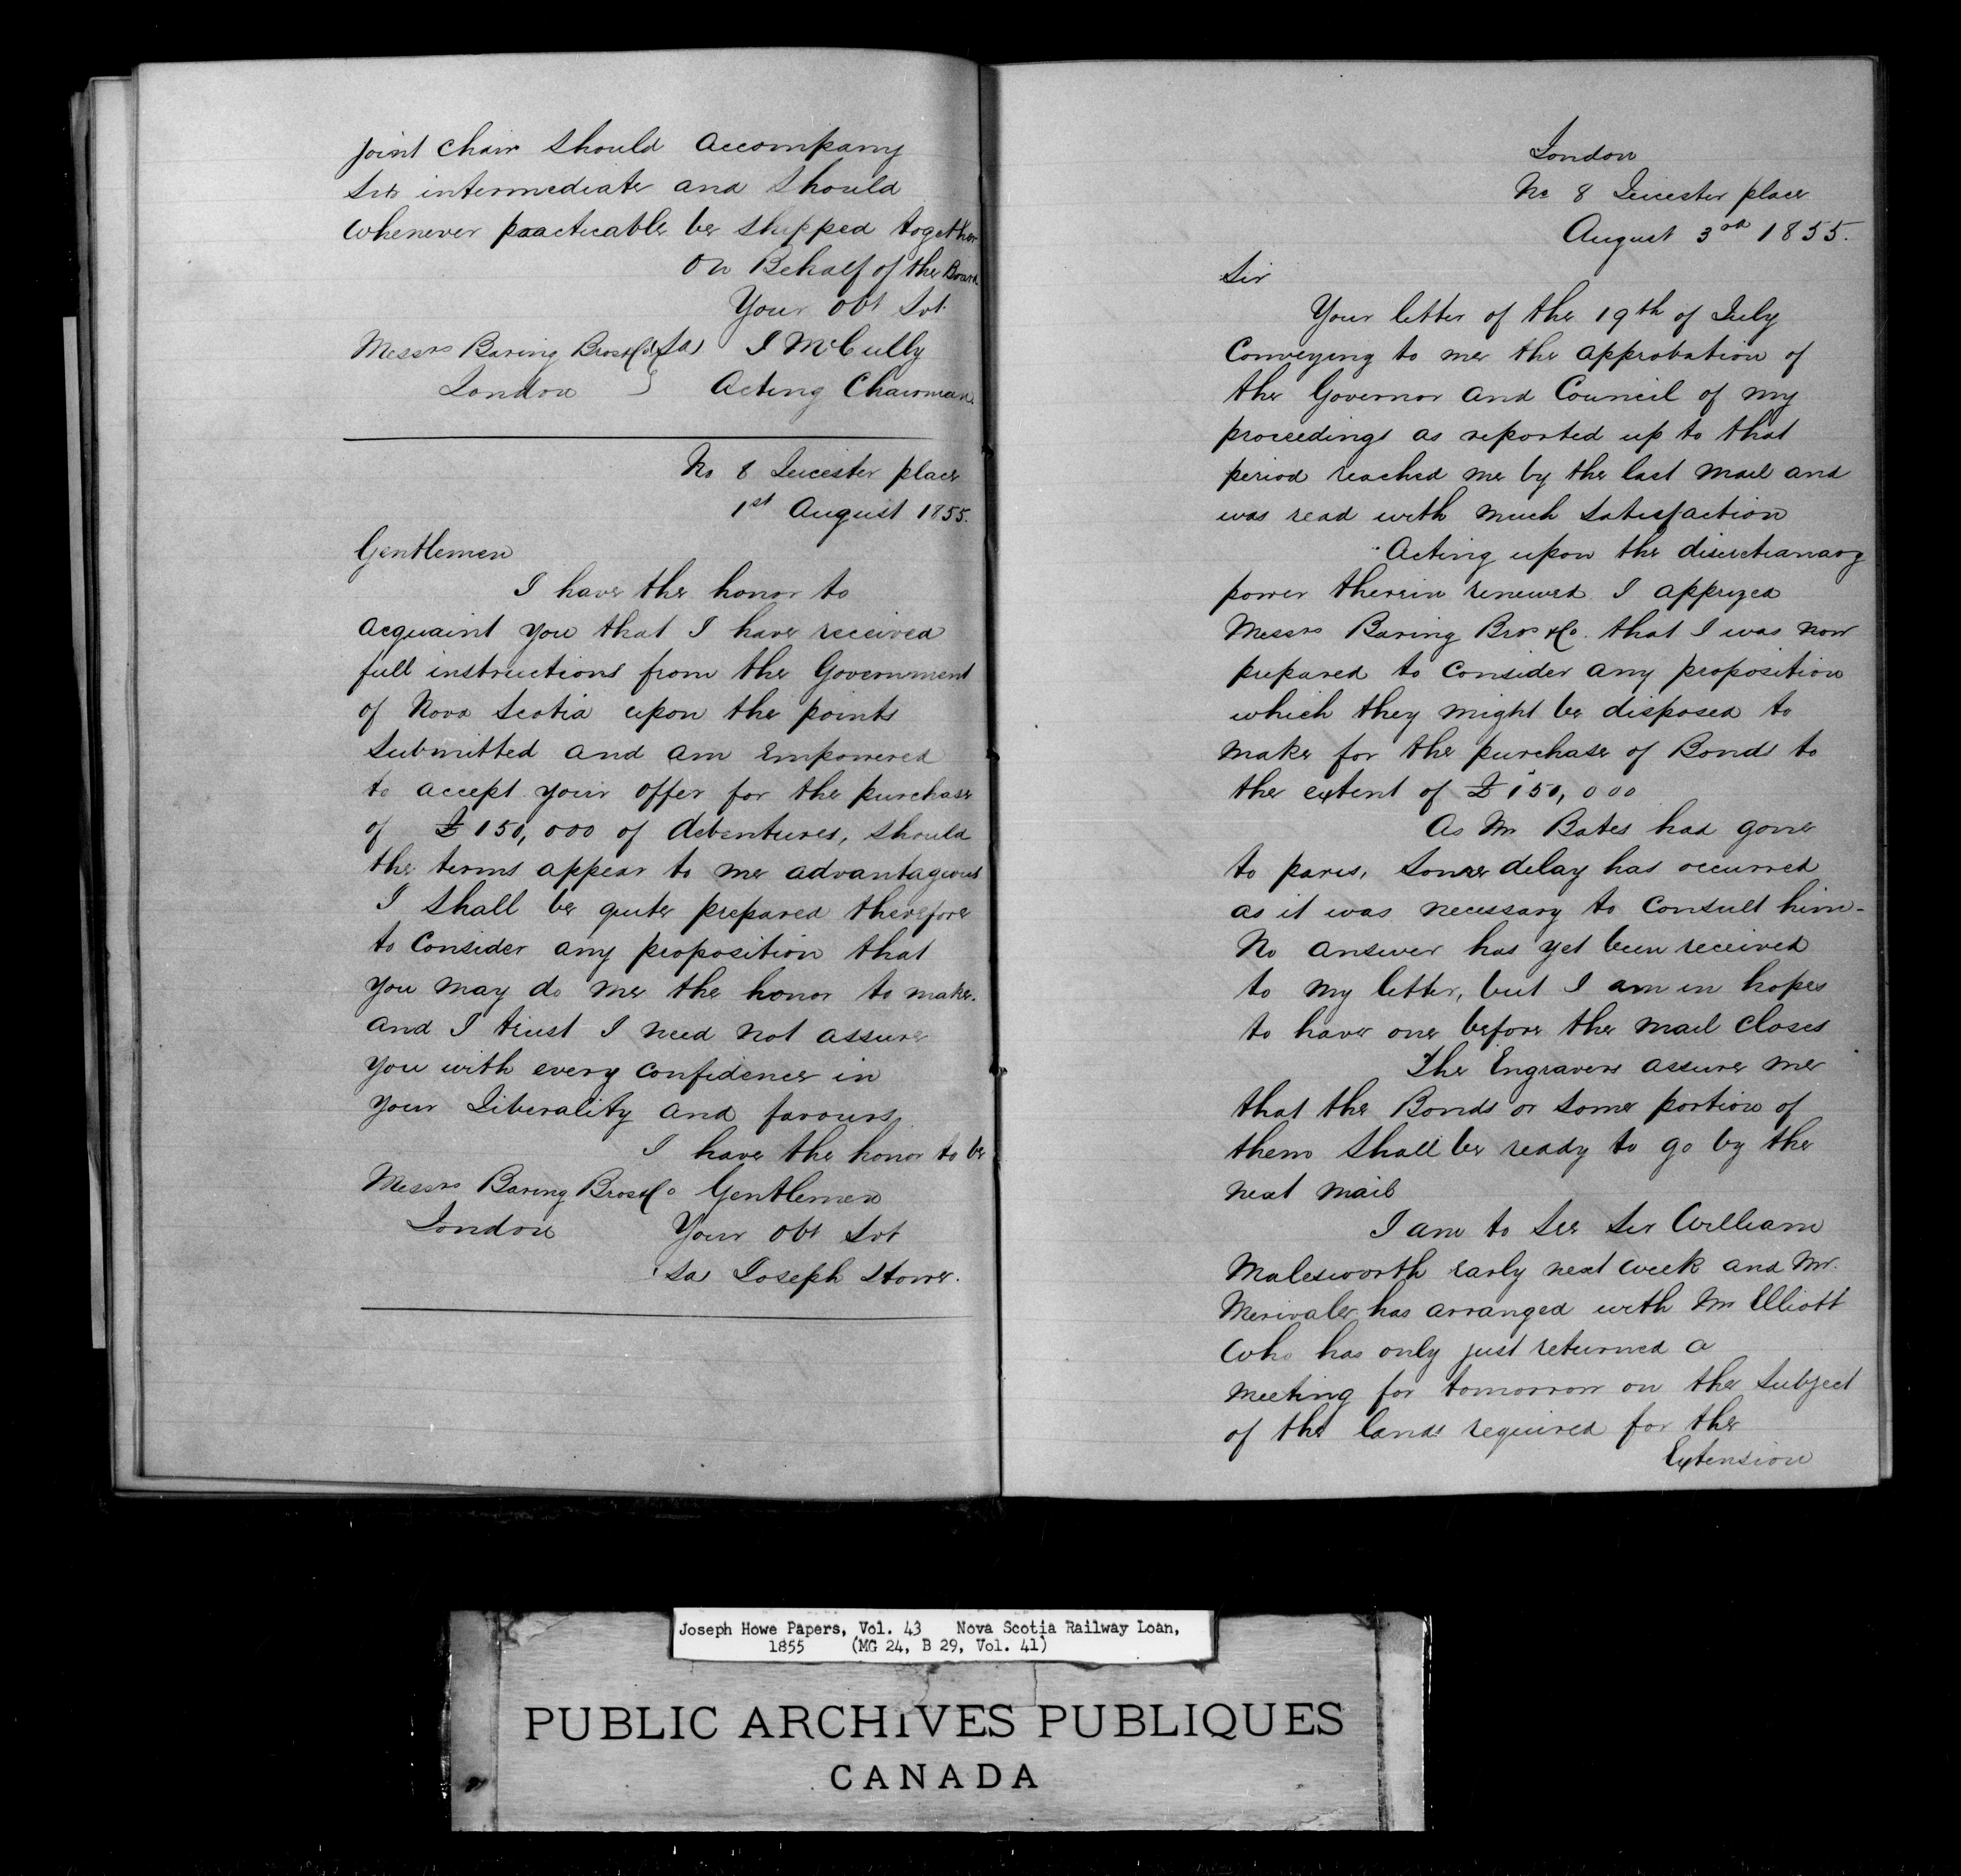 joint chair should accompany
six intermediate and should
whenever practicable be shipped together
On Behalf of the Board
Your Obt Svt
Messrs Baring Bros & Co (Sd) J McCully
London } Acting Chairman
No 8 Leicester place
1st August 1855.
Gentlemen
I have the honor to
acquaint you that I have received
full instructions from the Government
of Nova Scotia upon the points
submitted and am Empowered
to accept your offer for the purchase
of £150,000 of debentures, should
the terms appear to me advantageous
I shall be quite prepared therefore
to Consider any proposition that
you may do me the honor to make.
and I trust I need not assure
you with every confidence in
your Liberality and favours
I have the honor to be
Messrs Baring Bros & Co Gentlemen
London Your Obt Svt
(Sd) Joseph Howe.
London
No 8 Leicester place
August 3rd 1855.
Sir
Your letter of the 19th of July
Conveying to me the approbation of
the Governor and Council of my
proceedings as reported up to that
period reached me by the last mail and
was read with much satisfaction
Acting upon the discretianary
power therein renewed I apprized
Messrs Baring Bros & Co. that I was now
prepared to consider any proposition
which they might be disposed to
make for the purchase of Bonds to
the extent of £150,000
As Mr Bates had gone
to paris, some delay has occurred
as it was necessary to consult him-
No answer has yet been received
to my letter, but I am in hopes
to have one before the mail closes
The Engravers assure me
that the Bonds or some portion of
them shall be ready to go by the
next mail
I am to see Sir William
Malesworth early next week and Mr.
Merivale has arranged with Mr Elliott
who has only just returned a
meeting for tomorrow on the subject
of the lands required for the
Extension
Joseph Howe Papers, Vol. 43 Nova Scotia Railway Loan,
1855 (MG 24, B 29, Vol. 41)
PUBLIC ARCHIVES PUBLIQUES
CANADA